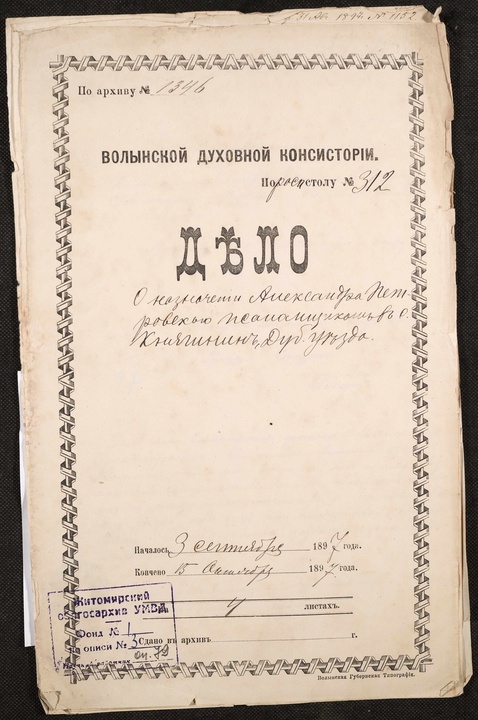 31 1897 № 1152
По архиву № 1346
ВОЛЫНСКОЙ ДУХОВНОЙ КОНСИСТОРІИ.
По столу № 312
ДѢЛО
О назначеніи Александра Пет-
ровскаго псаломщикомъ въ с.
Княгининъ, Дуб. уѣзда.
Началось 3 сентября 1897 года.
Кончено 15 Октября 1897 года.
4 листахъ.
Сдано въ архивъ г.
Житомирский
облгосархив УМВД
Фонд № 1
№ описи № 3
Волынская Губернская Типографія.